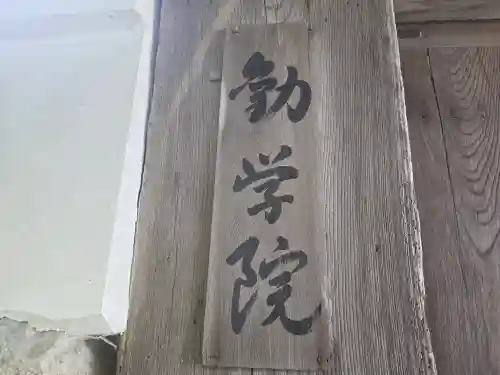 勧学院